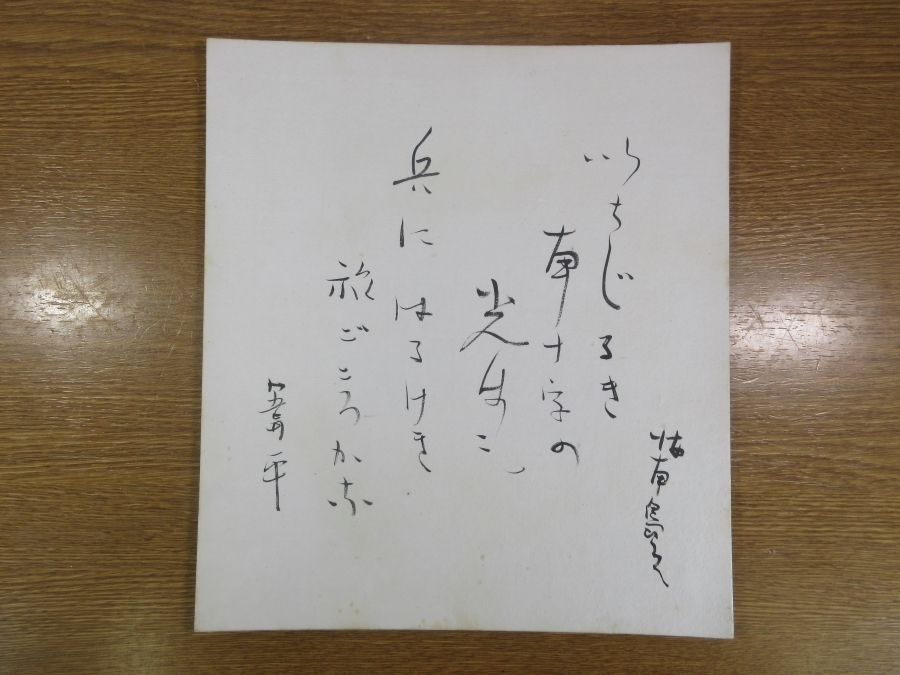 海南島にて
いちじるき
南十字の
光
兵にはるけき
旅ごころかな
葦平